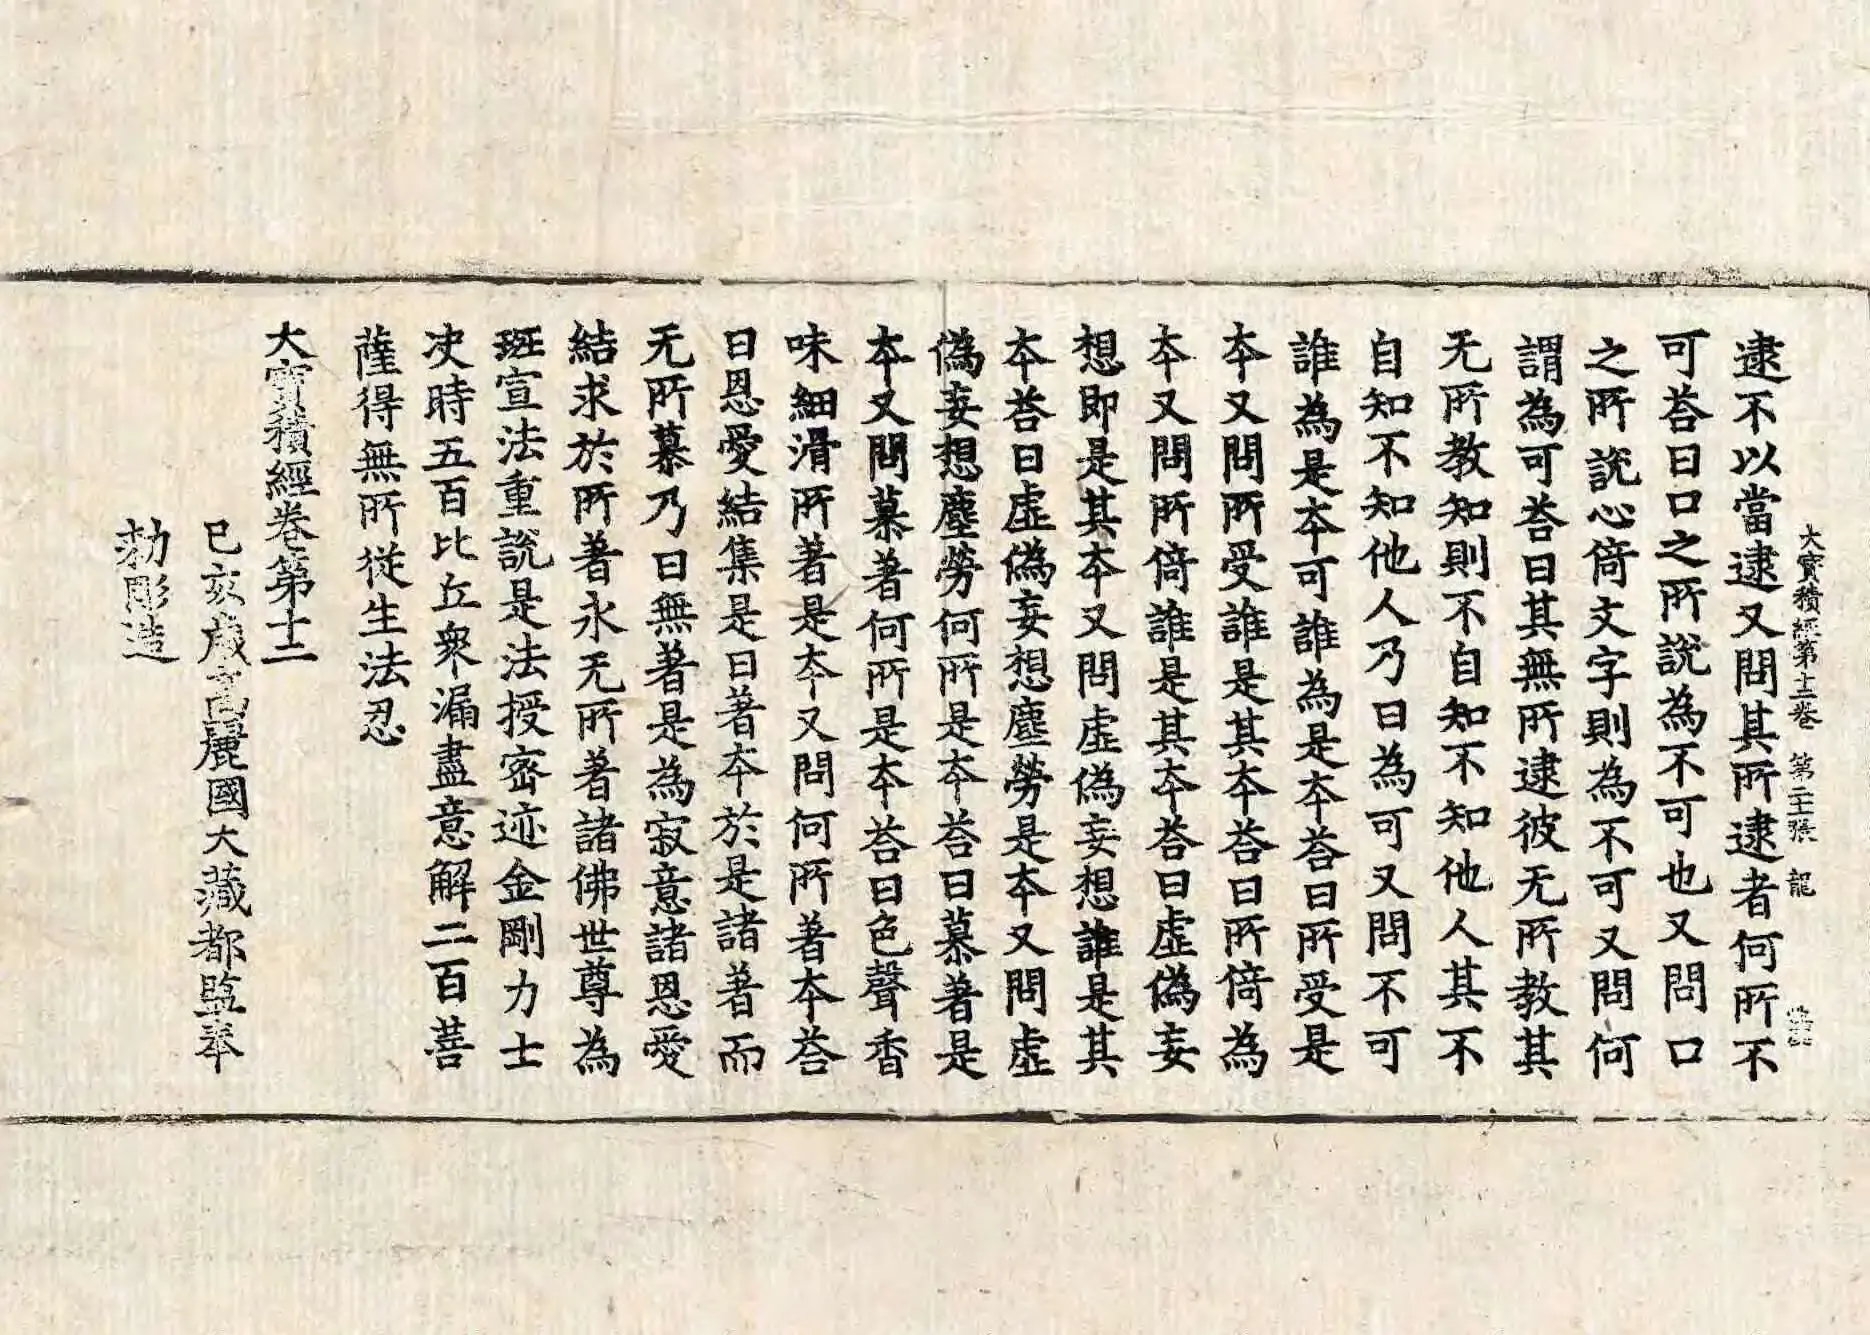 大寶積經第十二卷 第二十張 龍
逮不以當逮又問其所逮者何所不
可荅曰口之所說為不可也又問口
之所說心倚文字則為不可又問何
謂為可荅曰其無所逮彼无所教其
无所教知則不自知不知他人其不
自知不知他人乃曰為可又問不可
誰為是夲可誰為是夲荅曰所受是
夲又問所受誰是其夲荅曰所倚為
夲又問所倚誰是其夲荅曰虛偽妄
想即是其夲又問虛偽妄想誰是其
夲荅曰虛偽妄想塵勞是夲又問虛
偽妄想塵勞何所是夲荅曰慕著是
夲又問慕著何所是夲荅曰色聲香
味細滑所著是夲又問何所著夲荅
曰恩愛結集是曰著夲於是諸著而
无所慕乃曰無著是為寂意諸恩愛
結求於所著永无所著諸佛世尊為
班宣法重說是法授密迹金剛力士
决時五百比丘衆漏盡意解二百菩
薩得無所從生法忍
大寶積經卷第十二
己亥歲高麗國大藏都監奉
勅彫造